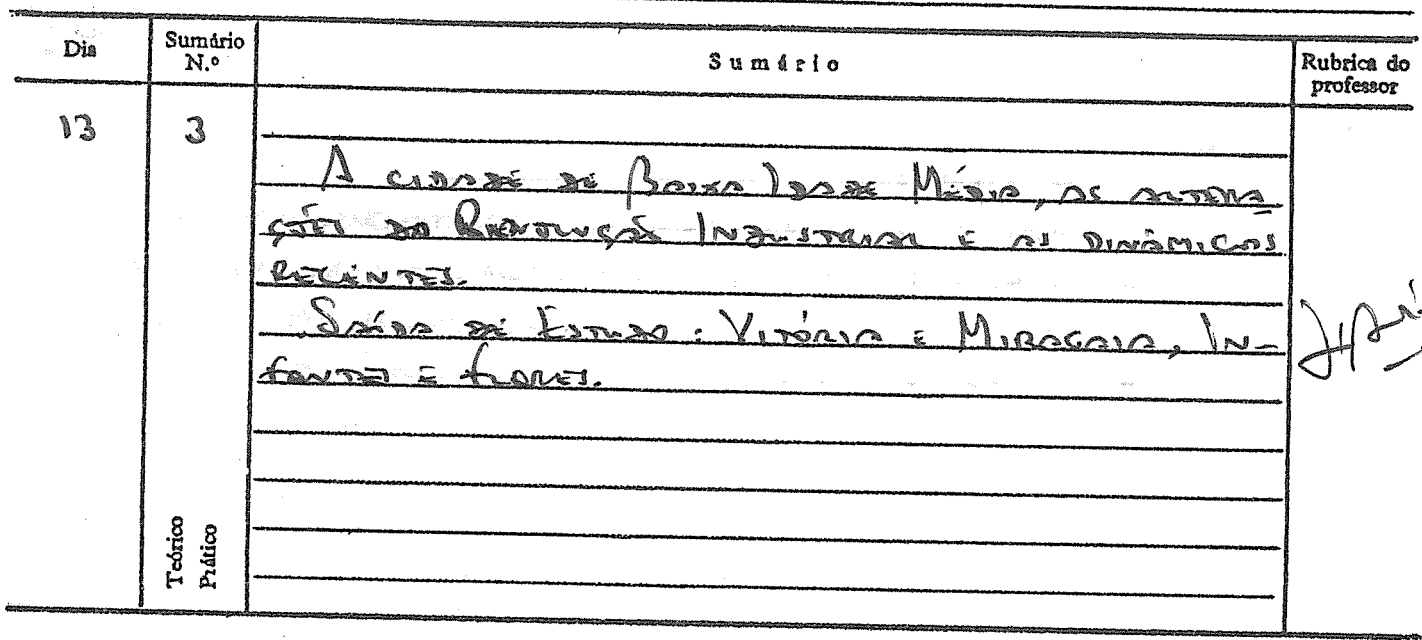 Dia
Sumário N.º
Sumário
Rubrica do professor
13
3
A CIDADE DE BAIXA IDADE MÉDIA, AS ALTERA-
ÇÕES DA REVOLUÇÃO INDUSTRIAL E AS DINÂMICAS
RECENTES.
SAÍDA DE ESTUDO: VITÓRIA E MIRAGAIA, IN-
FANTES E FLORES.
Teórico
Prático